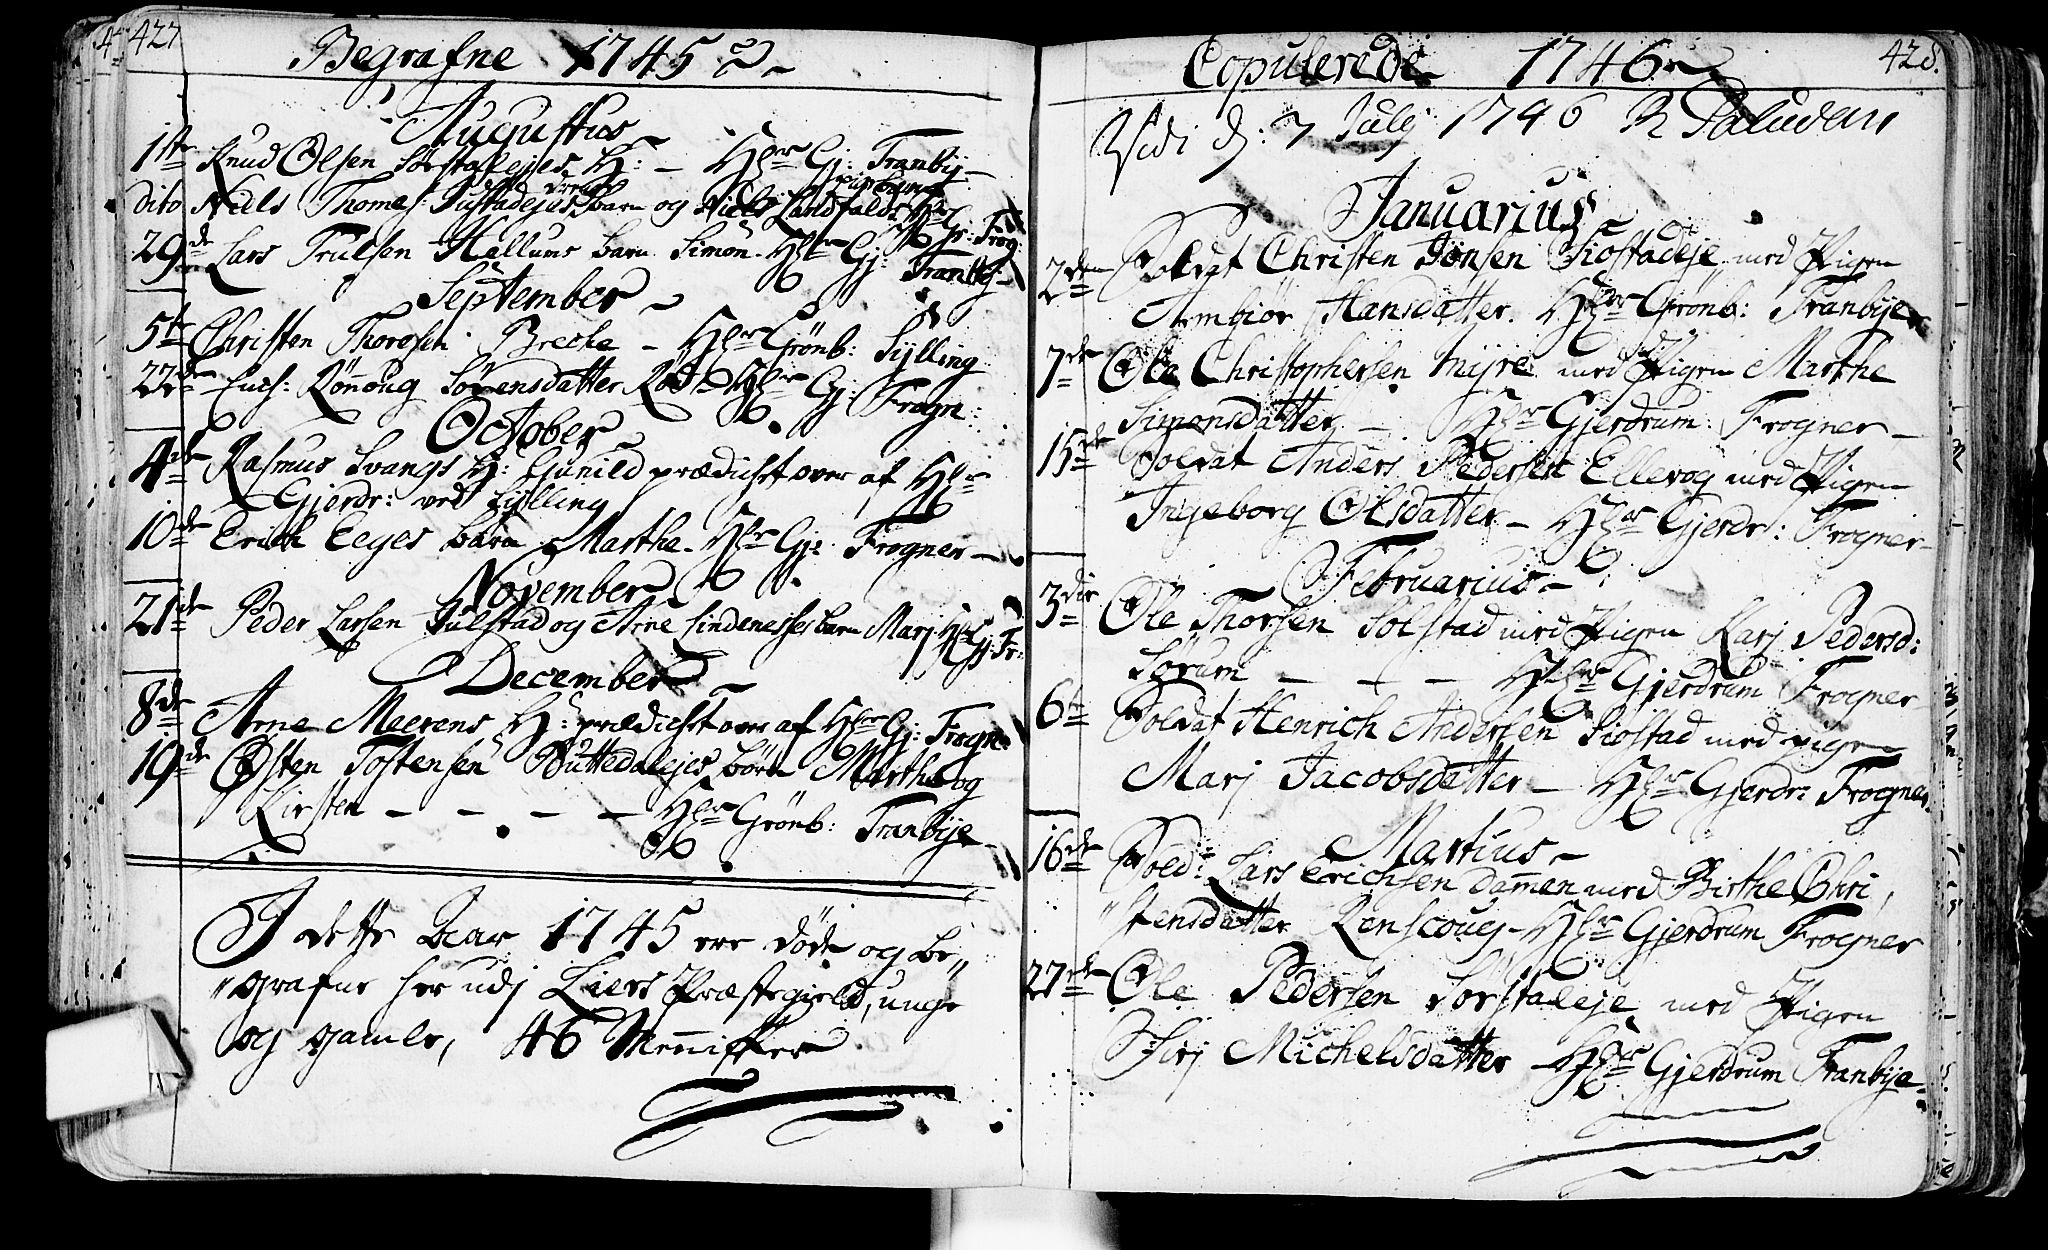 427
Begrafne 1745
Augustus
1ste Knud Olsen Sørstaleyes H: - Hlr Gj: Tranbij -
dito Niels Thomes: Justadejes barn og Niels Landfalds Hlr Gj: Frog:
29de Lars Trulsen Hallums barn Simon. Hlr Gj: Tranbij -
September
5te Christen Thorosen Brecke - Hlr Grönb: Sylling
22de Rönnoug Sörensdatter Röd Hlr Gj: Frogn:
October
4de Rasmus Svangs H: Gunild prædichet over af Hlr
Gjerdr: ved Sylling
10de Erich Eeges barn Martha. Hlr Gj: Frogner -
November
21de Peder Larsen Julstad og Arne Lindenesses barn Marj Hlr Gj: Fr:
December
8de Arne Meerens H: prædichet over af Hlr Gj: Frogn:
19de Østen Tostensen Buttedalejes börn Marthe og
Kirsten - - - - Hlr Grönb: Tranbye
I dette Aar 1745 ere döde og be„
„grafne her udj Liers Præstegield, unge
og gamle, 46 Menisker
428.
Copulerede 1746
Vidi d: 7 Julij 1746 R Paludan
Januarius
2den Soldat Christen Jonsen Siostadeje med Pigen
Armbiör Hansdatter. Hlr Grönb: Tranbye
7de Ole Christophersen Myre med Pigen Marthe
Simonsdatter - Hlr Gjerdrum: Frogner -
15de Soldat Anders Pedersen Ellevog med Pigen
Ingeborg Olsdatter - Hlr Gjerdr: Frogner -
Februarius -
3die Ole Thorsen Solstad med Pigen Karj Pedersd:
Sørum - - - Hlr Gjerdrum Frogner
6te Soldat Henrich Andersen Siostad med pigen
Marj Jacobsdatter - Hlr Gjerdr: Frogner.
Martius -
16de Sold: Lars Erichsen Damen med Birthe Chri,
„stensdatter Renscoug - Hlr Gjerdrum Frogner
27de Ole Pedersen Sørstaleje med Pigen
Sirj Michelsdatter - Hlr Gjerdrum Tranbye -